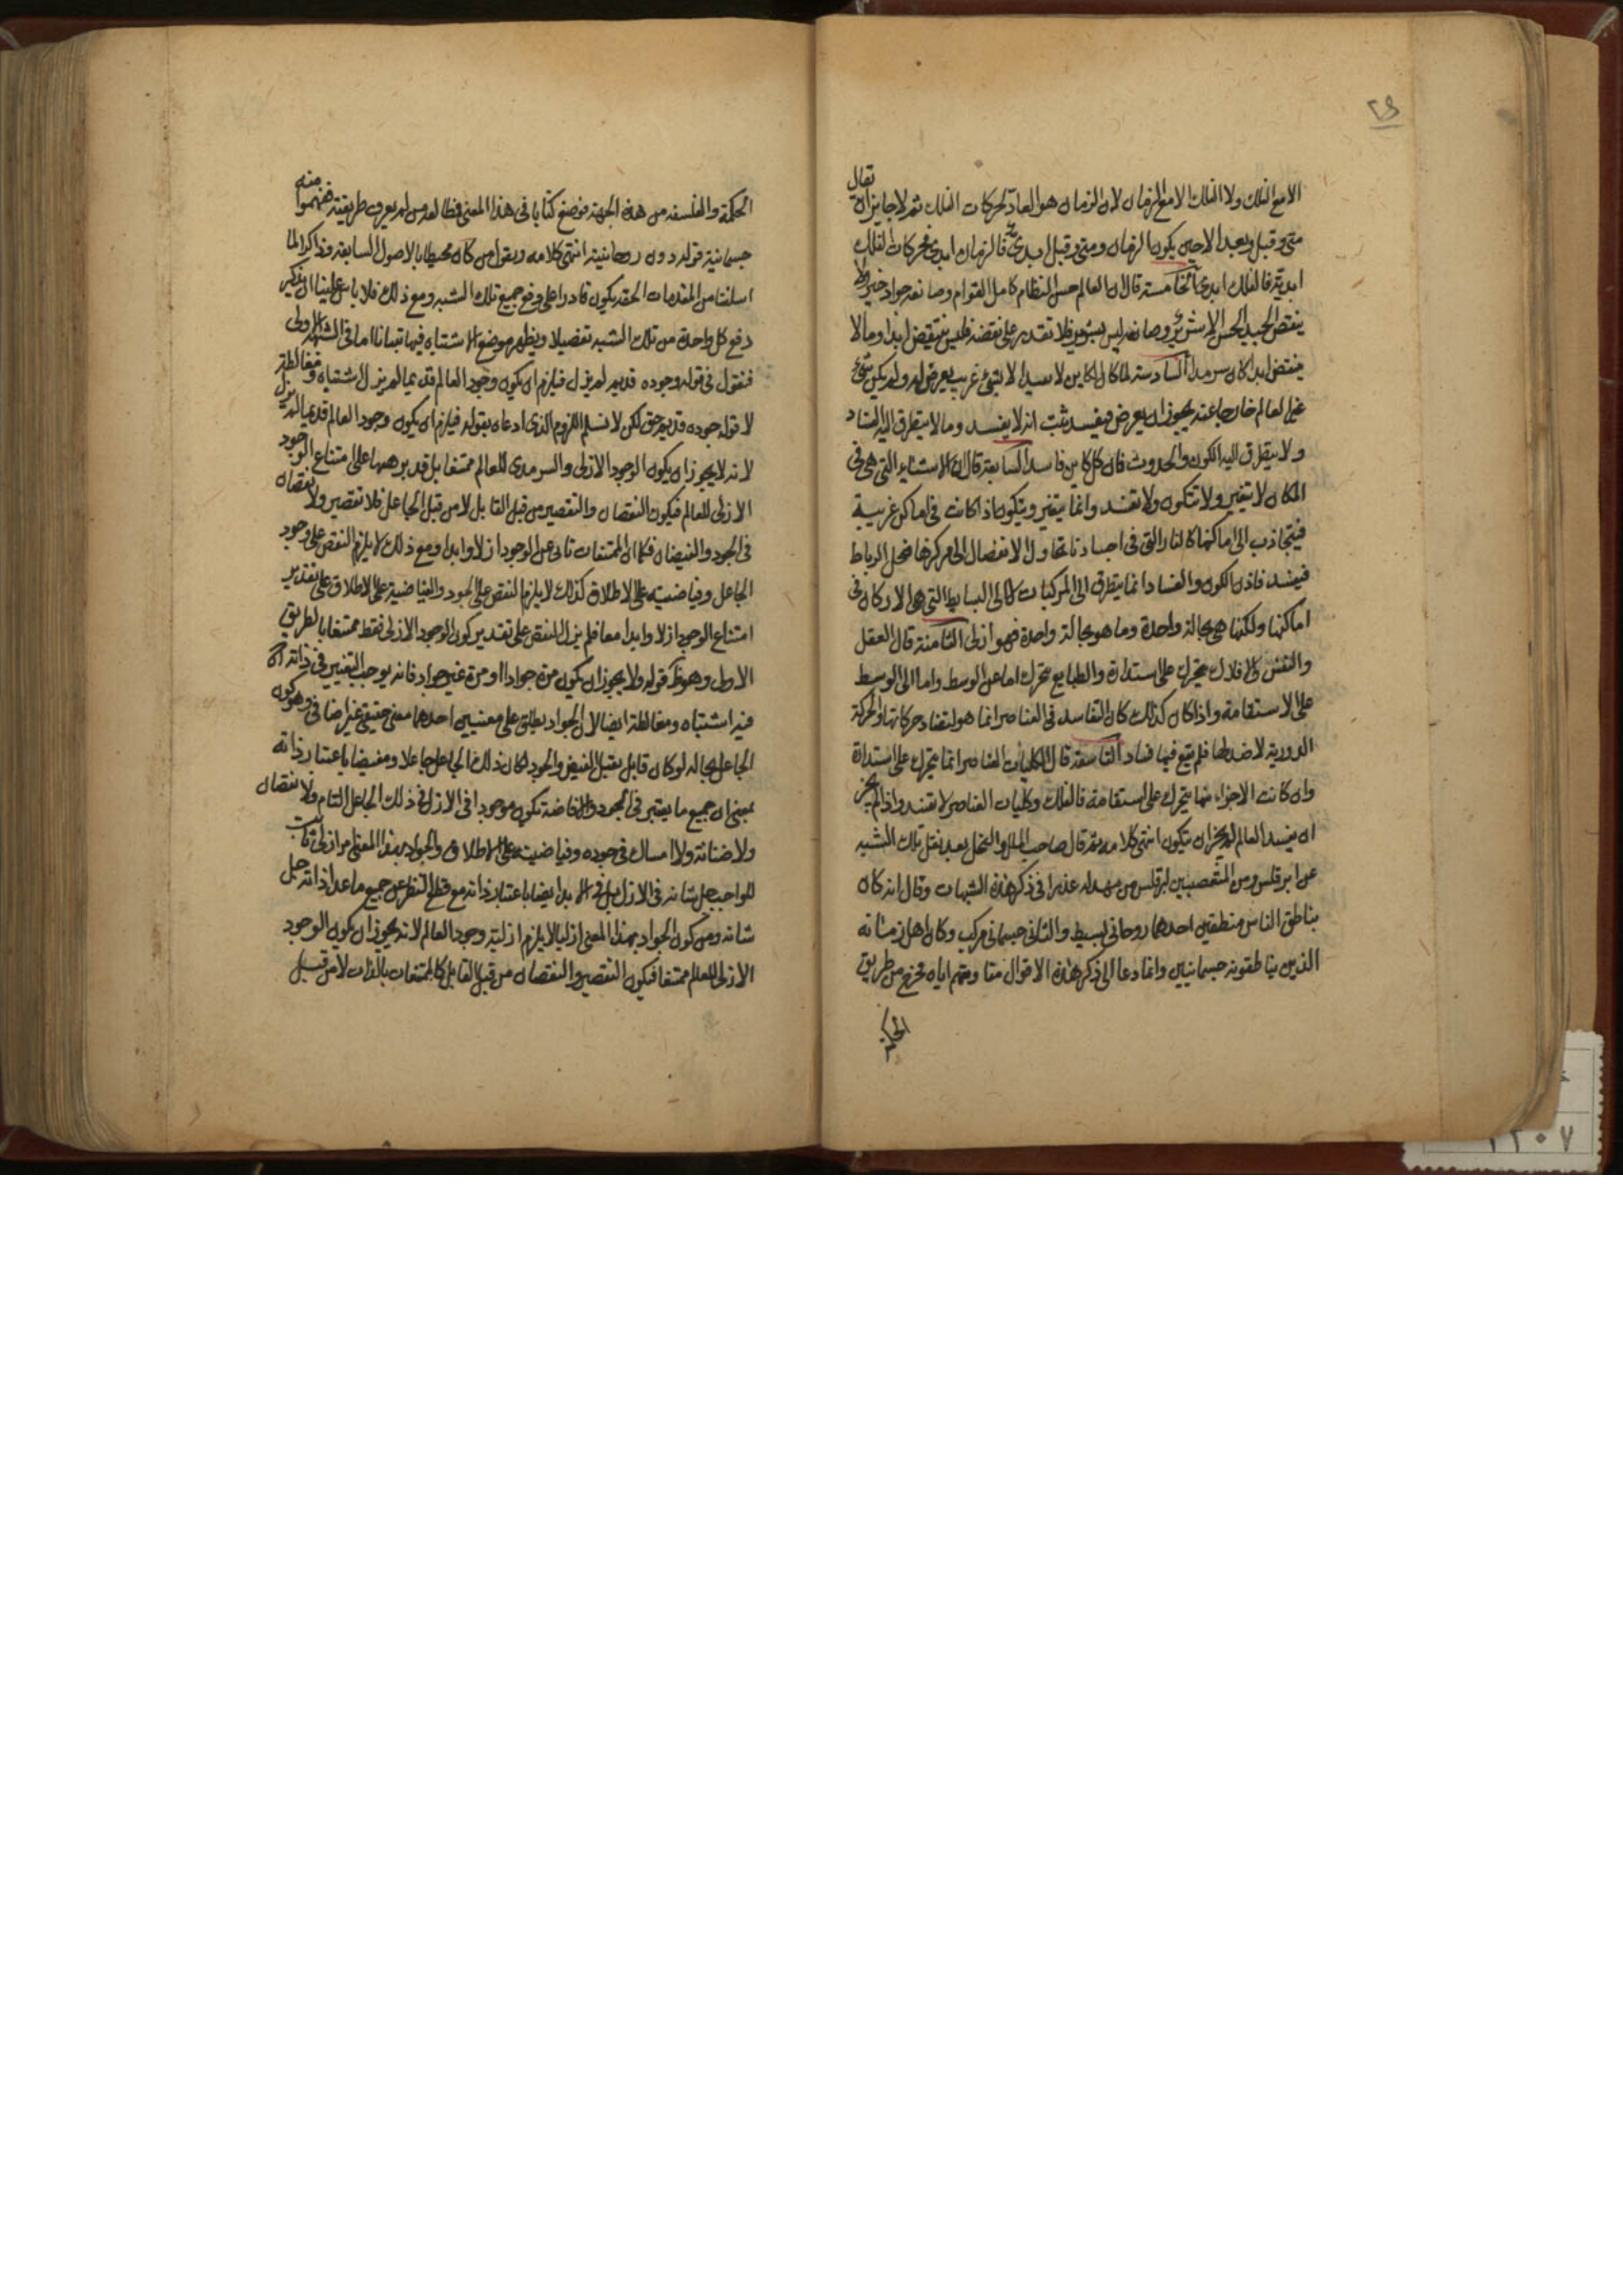 ٢٩
الا مع الفلك ولا الفلك الا مع الزمان لان الزمان هو العاد لحركات الفلك ثم لا جايز ان يقال
متى وقبل وبعد الا حين يكون الزمان ومتى وقبل ابدى فالزمان ابدى فحركات الفلك
ابدية فالفلك ابدى الخامسة قال ان العالم حسن النظام كامل القوام وصانعه جواد خير ولا
ينقض الجيد الحسن الا شرير وصانعه ليس بشرير فلا يقدر على نقضه فليس ينتقض ابدا وما لا
ينتقض ابدا كان سرمدا السادسة لما كان الكاين لا يفسد الا بشئ غريب يعرض له ولم يكن شئ
غير العالم خارجا عنه يجوز ان يعرض فيفسد ثبت انه لا يفسد وما لا يتطرق اليه الفساد
ولا يتطرق اليه الكون والحدوث فان كل كاين فاسد السابعة قال ان الاشياء التى هى فى
المكان لا تتغير ولا تتكون ولا تفسد وانما يتغير ويتكون اذا كانت فى اماكن غريبة
فيتجاذب الى اماكنها كالنار التى فى اجسادنا تحاول الانفصال الى مركزها فيحل الرباط
فيفسد فاذن الكون والفساد انما يتطرق الى المركبات لا الى البسايط التى هى الاركان فى
اماكنها ولكنها هى بحالة واحدة وما هو بحالة واحدة فهو ازلى الثامنة قال العقل
والنفس والافلاك يتحرك على استدارة والطبايع يتحرك اما عن الوسط واما الى الوسط
على الاستقامة واذا كان كذلك كان التفاسد فى العناصر انما هو لتضاد حركاتها والحركة
الدورية لا ضد لها فلم يقع فيها فساد التاسعة قال الكليات العناصر انما يتحرك على استدارة
وان كانت الاجزاء منها يتحرك على استقامة فالفلك وكليات العناصر لا تفسد واذا لم يجز
ان يفسد العالم لم يجز ان يتكون انتهى كلامه ثم قال صاحب الملل والنحل بعد نقل تلك الشبه
عن ابرقلس ومن المتعصبين لبرقلس من مهد له عذرا فى ذكر هذه الشبهات وقال انه كان
يناطق الناس منطقين احدهما روحانى بسيط والثانى جسمانى مركب وكان اهل زمانه
الذين يناطقونه جسمانيين وانما دعا الى ذكر هذه الاقوال مقاومتهم اياه فخرج من طريق
الحكمة
الحكمة والفلسفه من هذه الجهة فوضع كتابا فى هذا المعنى فطالعه من لم يعرف طريقته ففهموا منه
جسمانية قوله دون روحانيته انتهى كلامه ويقول من كان محيطا بالاصول السابقه وذاكرا لما
اسلفنا من المقدمات الحقه يكون قادرا على دفع جميع تلك الشبه ومع ذلك فلا باس علينا ان نذكر
دفع كل واحدة من تلك الشبه تفصيلا ويظهر موضع الاشتباه فيها تبيانا اما فى الشبهة الاولى
فنقول فى قوله وجوده قديم لم يزل فيلزم ان يكون وجود العالم قديما لم يزل اشتباه ومغالطة
لا قوله جوده قديم حق لكن لا نسلم اللزوم الذى ادعاه بقوله فيلزم ان يكون وجود العالم قديما لم يزل
لانه لا يجوز ان يكون الوجود الازلى والسرمدى للعالم ممتنعا بل قد برهنا على امتناع الوجود
الازلى للعالم فيكون النقصان والتقصير من قبل القابل لا من قبل الجاعل فلا تقصير ولا نقصان
فى الجود والفيضان فكما ان الممتنعات تابى عن الوجود ازلا وابدا ومع ذلك لا يلزم النقص على وجود
الجاعل وفياضيته على الاطلاق كذلك لا يلزم النقص على الجود والفياضية على الاطلاق على تقدير
امتناع الوجود ازلا وابدا معا فلم يزل النقص على تقدير كون الوجود الازلى فقط ممتنعا بالطريق
الاول وهو ظ قوله ولا يجوز ان يكون مرة جوادا او مرة غير جواد فانه يوجب التغيير فى ذاته
فيه اشتباه ومغالطة ايضا لان الجواد يطلق على معنيين احدهما معنى حقيقى غير اضافى وهو كون
الجاعل بحاله لو كان قابل يقبل الفيض والجود لكان ذلك الجاعل جاعلا ومفيضا باعتبار ذاته
بمعنى ان جميع ما يعتبر فى الجود والافاضة تكون موجودا فى الازل فى ذلك الجاعل التام ولا نقصان
ولا ضنانة ولا امساك فى جوده وفياضيته على الاطلاق والجواد بهذا المعنى امر ازلى ثابت
للواجب جل شانه فى الازل بل فى الابد ايضا باعتبار ذاته مع قطع النظر عن جميع ما عدا ذاته جل
شانه ومن كون الجواد بهذا المعنى ازليا لا يلزم ازلية وجود العالم لانه يجوز ان يكون الوجود
الازلى للعالم ممتنعا فيكون التقصير والنقصان من قبل القابل كالممتنعات بالذات لا من قبل